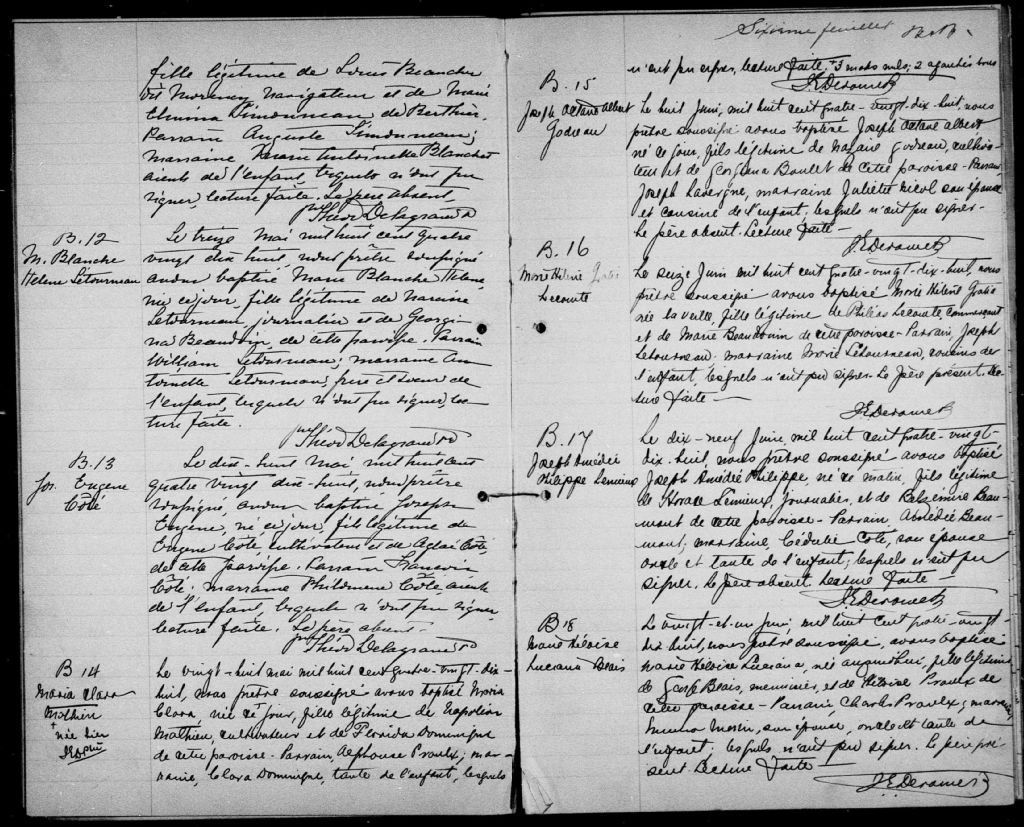 fille légitime de Louis Blanchet
dit Morency navigateur et de Marie
Simonneau de Berthier.
Parrain Auguste Simonneau;
marraine Blanchet
de l'enfant lesquels n'ont pu
signer lecture faite. Le père absent.
ptre
B.12
M. Blanche
Helene Letourneau
Le treize Mai mil huit cent quatre
vingt dix huit, nous prêtre soussigné
avons baptisé Marie Blanche Helene,
née ce jour, fille légitime de
Letourneau, journalier et de Georgi-
na Beaudoin, de cette paroisse. Parrain
William Letourneau; marraine An-
toinette Letourneau, frère et soeur de
l'enfant lesquels n'ont pu signer, lec-
ture faite.
ptre
B.13
Jos. Eugene
Côté
Le dix-huit Mai mil huit cent
quatre vingt dix-huit, nous prêtre
soussigné, avons baptisé Joseph
Eugene, né ce jour, fils légitime de
Eugene Côté, cultivateur et de Aglaé Côté
de cette paroisse. Parrain
Côté. marraine Philomene Côté,
de l'enfant, lesquels n'ont pu signer,
lecture faite. Le père absent.
ptre
B 14
Maria Clara
Mathieu
+ née hier
Le vingt-huit mai mil huit cent quatre-vingt-dix-
huit, nous prêtre soussigné avons baptisé Maria
Clara, née ce jour, fille légitime de Napoléon
Mathieu, cultivateur et de Florida Dominique
de cette paroisse - Parrain, Alphonse Proulx; mar-
raine, Clara Dominique, tante de l'enfant, lesquels
Sixième feuillet
n'ont pu signer, lecture faite. 3 mots nuls; 2 ajoutés bons
J.E. Deromeptre
B.15
Joseph Octave Albert
Godreau
Le huit Juin, mil huit cent quatre-vingt-dix-huit, nous
prêtre soussigné avons baptisé Joseph Octave Albert
né ce jour, fils légitime de Nazaire Godreau, cultiva-
teur et de Georgiana Boulet de cette paroisse - Parrain,
Joseph Lavergne, marraine Juliette Nicol son épouse
et cousine de l'enfant, lesquels n'ont pu signer.
Le père absent. Lecture faite —
J.E. Deromeptre
B.16
Marie Hélène
Lecomte
Le seize Juin mil huit cent quatre-vingt-dix-huit, nous
prêtre soussigné avons baptisé Marie Hélène
née la veille, fille légitime de Philéas Lecomte, commerçant
et de Marie Beaudoin de cette paroisse - Parrain, Joseph
Letourneau. marraine Marie Letourneau, cousins de
l'enfant, lesquels n'ont pu signer. Le père présent. Lec-
ture faite —
J.E. Deromeptre
B.17
Joseph Amédée
Philippe Lemieux
Le dix-neuf Juin, mil huit cent quatre-vingt-
dix-huit, nous prêtre soussigné avons baptisé
Joseph Amédée Philippe, né ce matin, fils légitime
de Horace Lemieux, journalier, et de Belzémire Beau-
mont de cette paroisse - Parrain, Beau-
mont; marraine, Cédulie Coté, son épouse
oncle et tante de l'enfant; lesquels n'ont pu
signer. Le père absent. Lecture faite —
J.E. Deromeptre
B 18
Marie Héloise
Luciana Blais
Le vingt-et-un juin mil huit cent quatre-vingt-
dix huit, nous prêtre soussigné, avons baptisé
Marie Héloise Luciana, née aujourd'hui, fille légitime
de George Blais, menuisier, et de Héloise Proulx de
cette paroisse - Parrain Charles Proulx; marraine
Morin, son épouse, oncle et tante de
l'enfant, lesquels n'ont pu signer. Le père pré-
sent Lecture faite —
J.E. Deromeptre